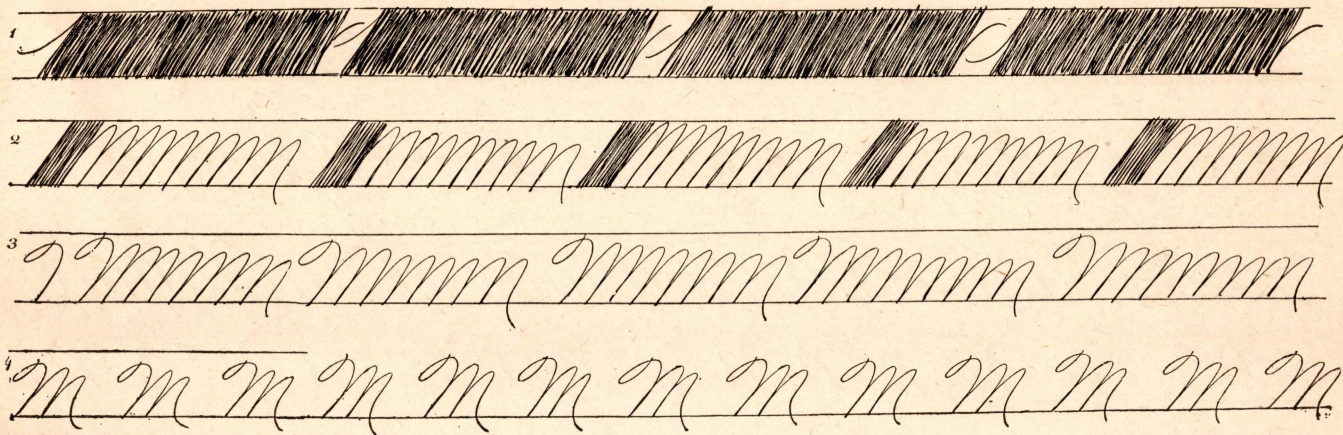 1
2
3
4 M M M M M M M M M M M M M